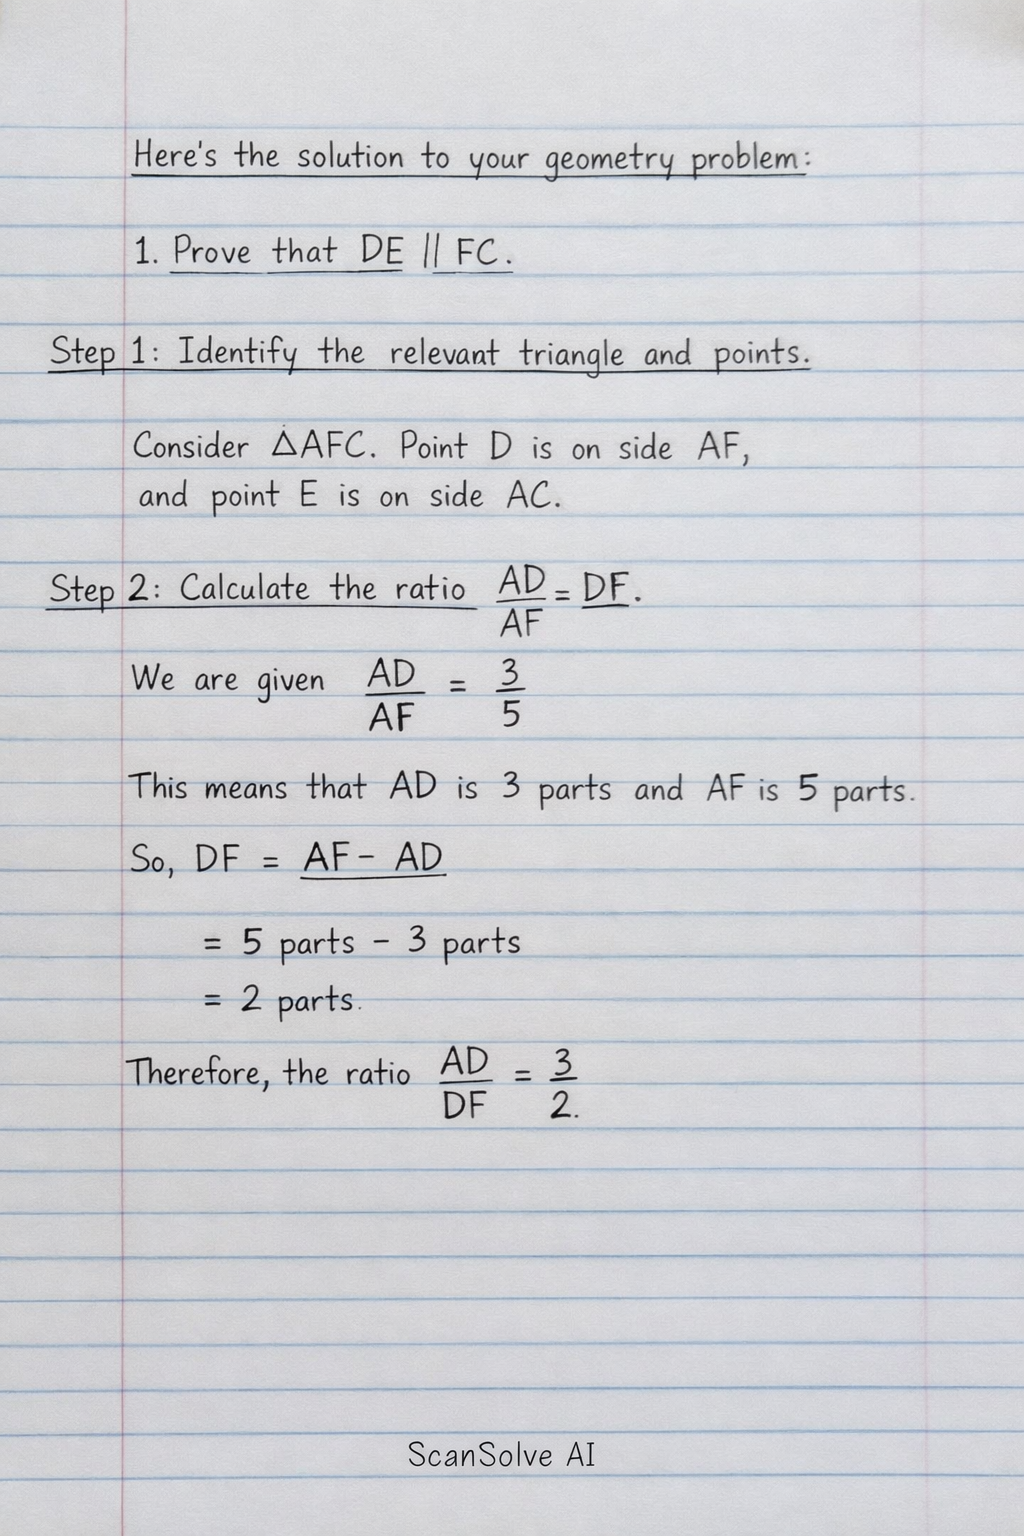 Here's the solution to your geometry problem:
1. Prove that DE || FC.
Step 1: Identify the relevant triangle and points.
Consider △AFC. Point D is on side AF,
and point E is on side AC.
Step 2: Calculate the ratio AD/AF = DF.
We are given AD/AF = 3/5
This means that AD is 3 parts and AF is 5 parts.
So, DF = AF - AD
= 5 parts - 3 parts
= 2 parts.
Therefore, the ratio AD/DF = 3/2.
ScanSolve AI